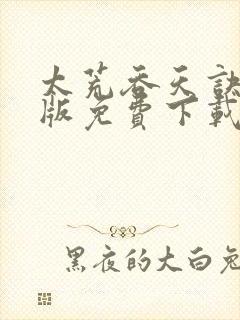 太荒吞天訣
版免費下載
黑夜的大白兔